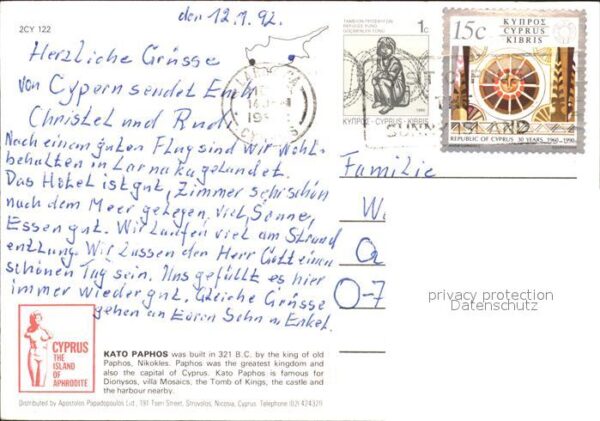 2CY 122
den 12.1.92.
Herzliche Grüsse
von Cypern sendet Euch
Christel und Rudi
Nach einem guten Flug sind wir Wohl-
behalten in Larnaka gelandet.
Das Hotel ist gut, Zimmer sehr schön
nach dem Meer gelegen, viel Sonne,
Essen gut. Wir laufen viel am Strand
entlang. Wir lassen den Herr Gott einen
schönen Tag sein. Uns gefällt es hier
immer wieder gut. Gleiche Grüsse
gehen an Euren Sohn u. Enkel.
CYPRUS
THE
ISLAND
OF
APHRODITE
KATO PAPHOS was built in 321 B.C. by the king of old
Paphos, Nikokles. Paphos was the greatest kingdom and
also the capital of Cyprus. Kato Paphos is famous for
Dionysos, villa Mosaics, the Tomb of Kings, the castle and
the harbour nearby.
Distributed by Apostolos Papadopoulos Ltd., 191 Tseri Street, Strovolos, Nicosia, Cyprus. Telephone (02) 424321
1c
ΚΥΠΡΟΣ-CYPRUS-KIBRIS
15c
ΚΥΠΡΟΣ
CYPRUS
KIBRIS
REPUBLIC OF CYPRUS 30 YEARS 1960-1990
LARNACA
CYPRUS
SUNNY ISLAND
Familie
W
O-7
privacy protection
Datenschutz